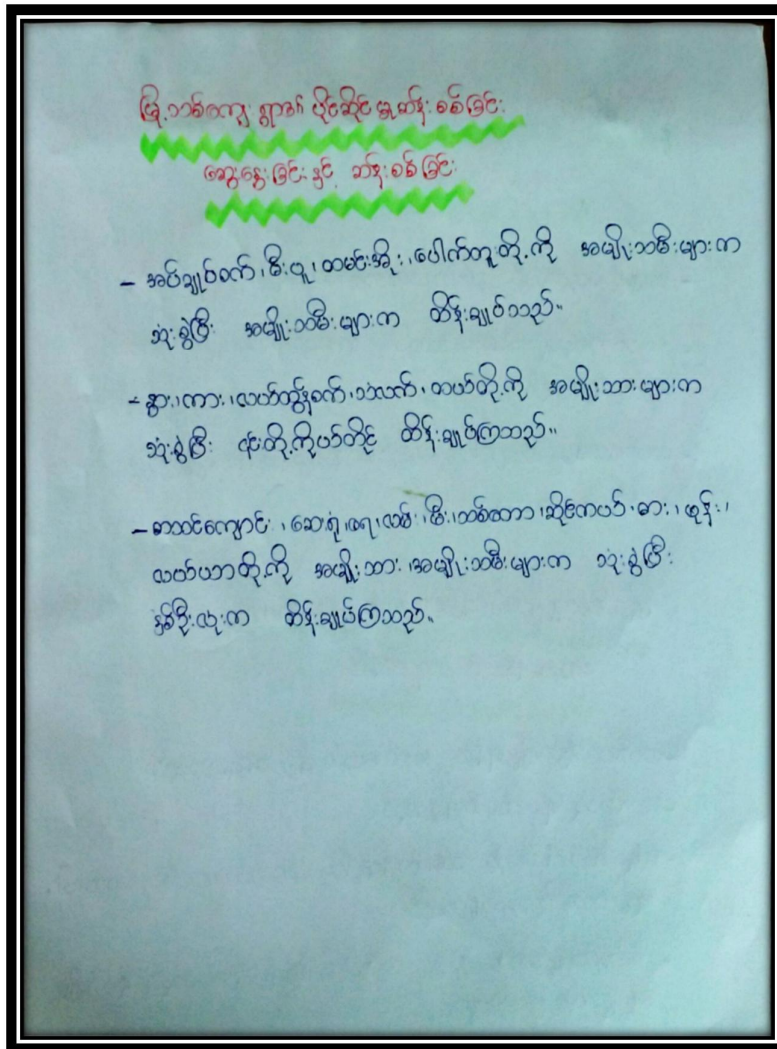 မြို့သစ်ကျေးရွာ၏ ပိုင်ဆိုင်မှုဆန်းစစ်ခြင်း
ဆွေးနွေးခြင်းနှင့် ဆန်းစစ်ခြင်း
- အပ်ချုပ်စက်၊ မီးပူ၊ ထမင်းအိုး၊ ပေါက်တူးတို့ကို အမျိုးသမီးများက
သုံးစွဲပြီး အမျိုးသမီးများက ထိန်းချုပ်သည်။
- နွား၊ ကား၊ လယ်ထွန်စက်၊ သံလက်၊ ထယ်တို့ကို အမျိုးသားများက
သုံးစွဲပြီး ၎င်းတို့ကိုယ်တိုင် ထိန်းချုပ်ကြသည်။
- စာသင်ကျောင်း၊ ဆေးရုံ၊ ရေ၊ လမ်း၊ မီး၊ သစ်တော၊ ဆိုင်ကယ်၊ ဓား၊ ဖုန်း၊
လယ်ယာတို့ကို အမျိုးသား၊ အမျိုးသမီးများက သုံးစွဲပြီး
နှစ်ဦးလုံးက ထိန်းချုပ်ကြသည်။